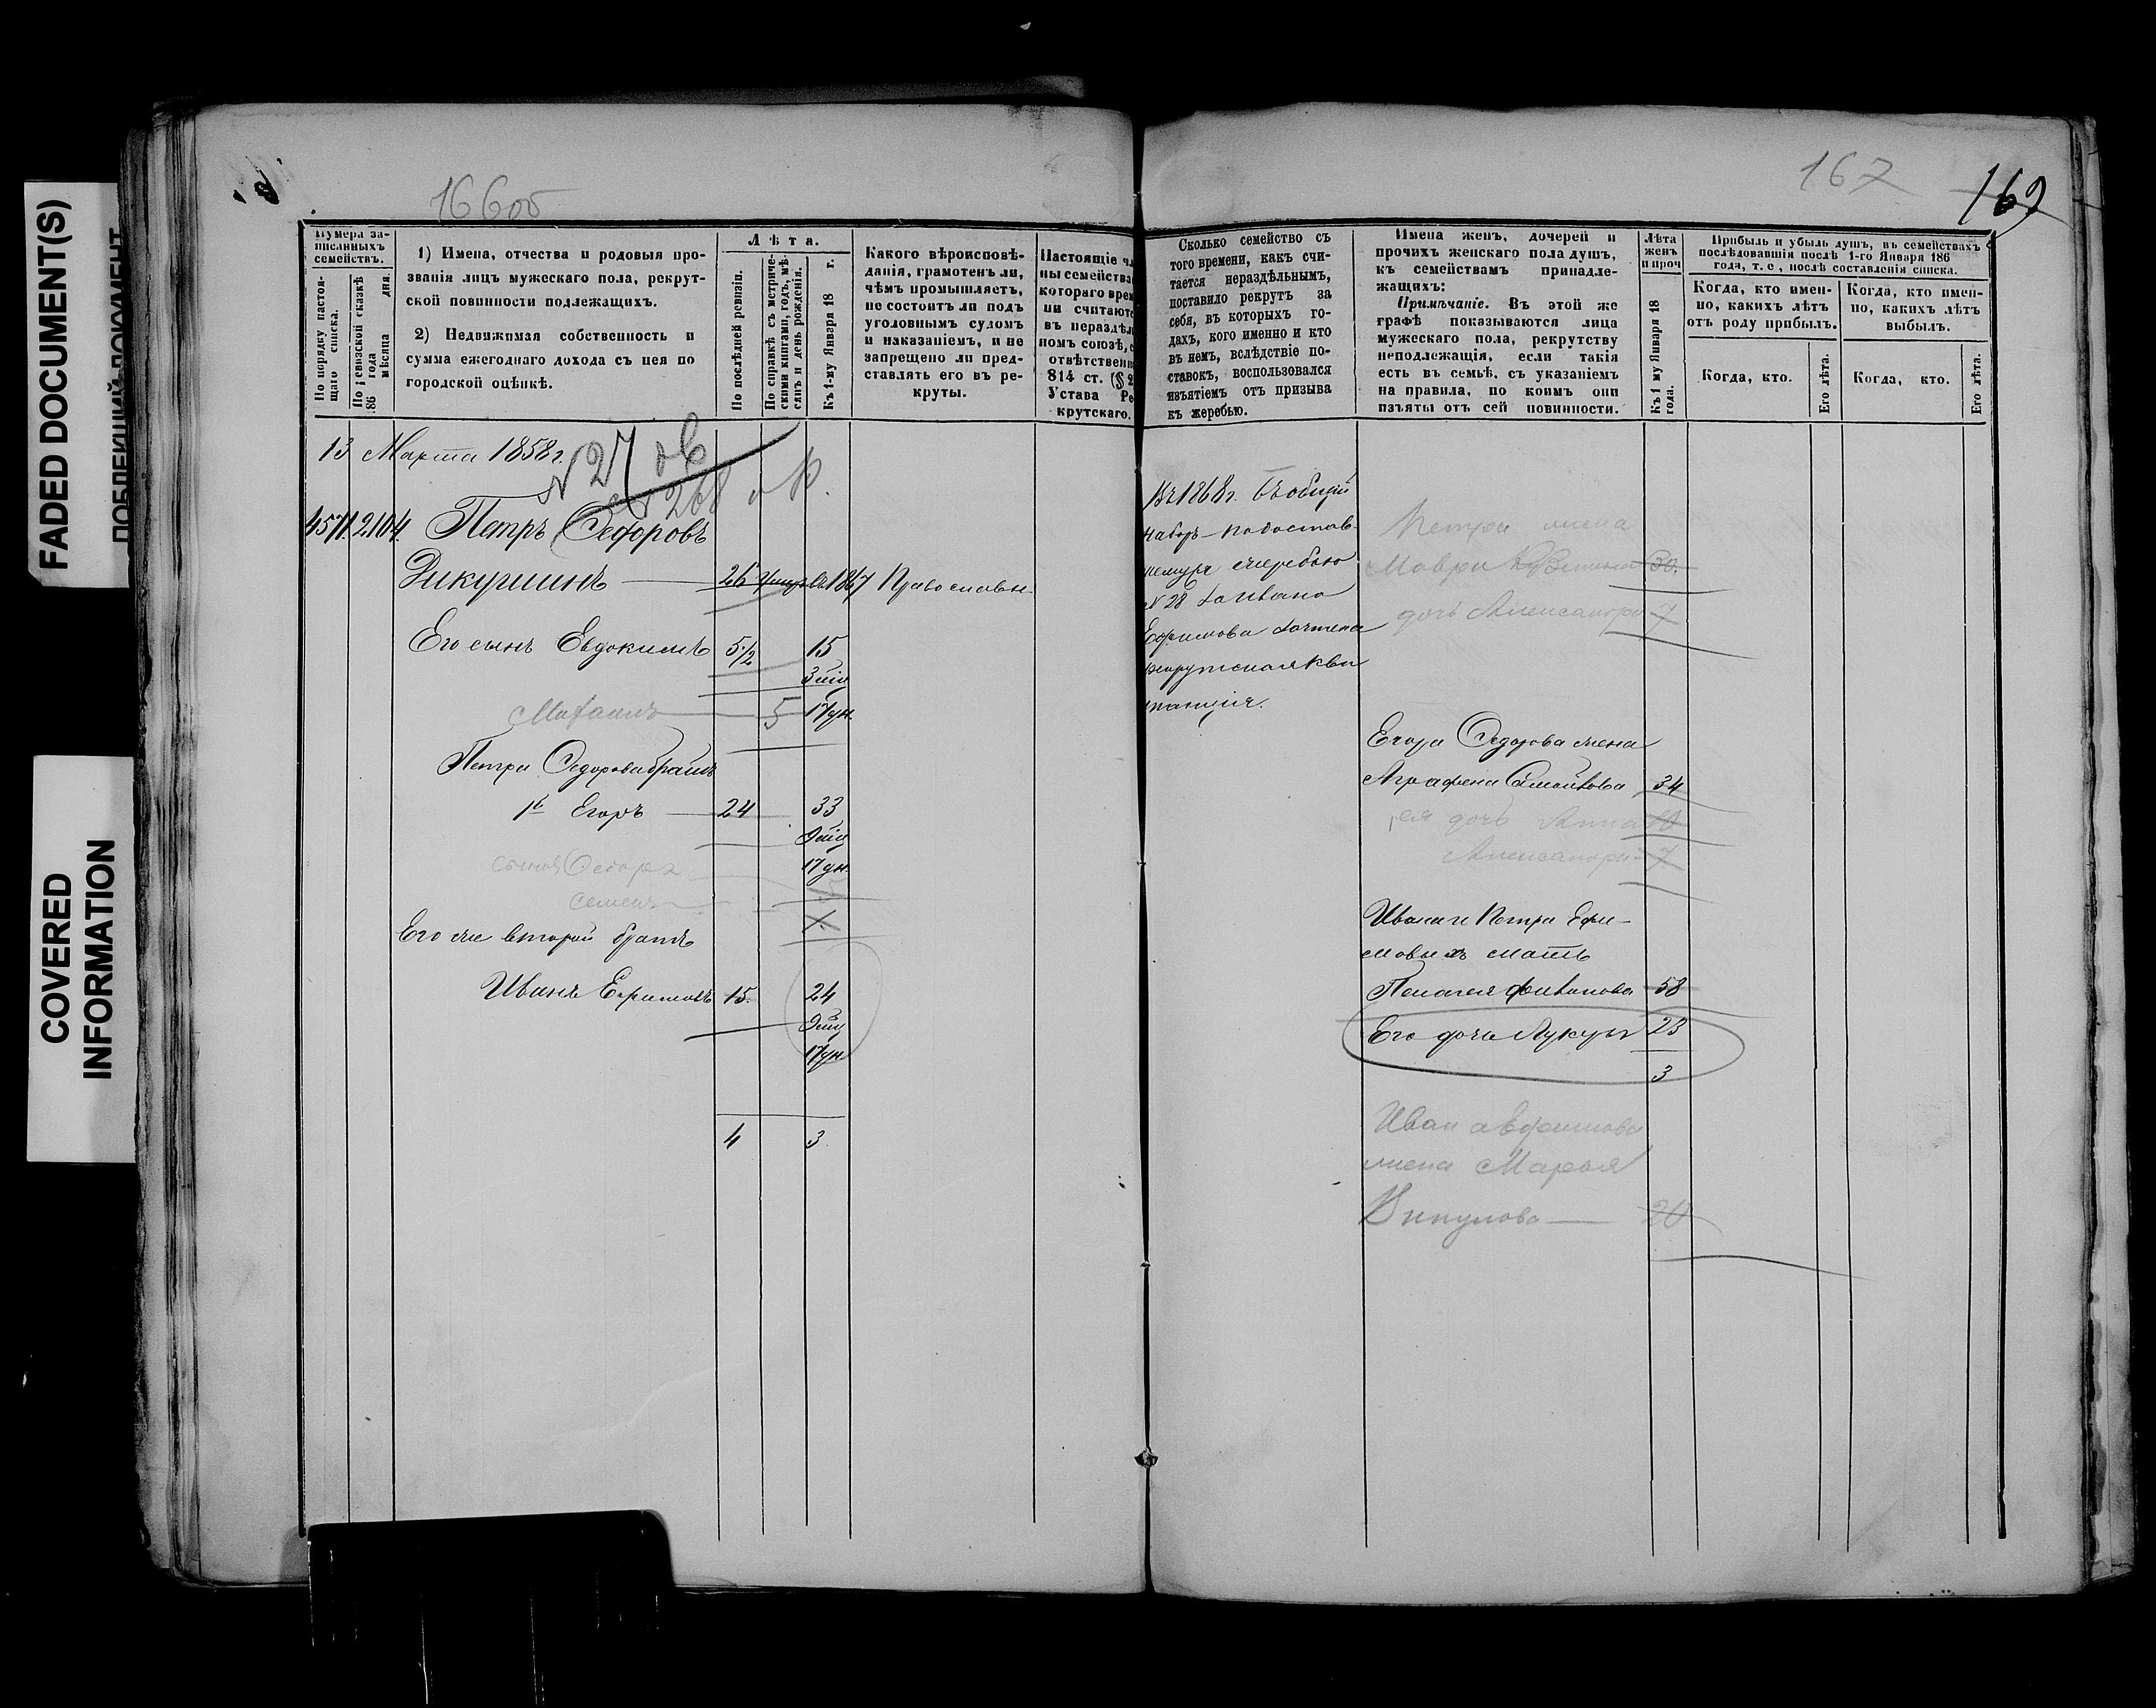 FADED DOCUMENT(S)
COVERED
INFORMATION
166об
167
169
Нумера записанныхъ семействъ.
По порядку настоящаго списка.
По ревизской сказкѣ 186 года мѣсяца дня.
1) Имена, отчества и родовыя про-
званія лицъ мужескаго пола, рекрут-
ской повинности подлежащихъ.
2) Недвижимая собственность и
сумма ежегоднаго дохода съ нея по
городской оцѣнкѣ.
Лѣта.
По послѣдней ревизіи.
По справкѣ съ метриче-
скими книгами, годъ, мѣ-
сяцъ и день рожденія.
Къ 1-му Января 18 г.
Какого вѣроисповѣ-
данія, грамотенъ ли,
чѣмъ промышляетъ,
не состоитъ ли подъ
уголовнымъ судомъ
и наказаніемъ, и не
запрещено ли пред-
ставлять его въ ре-
круты.
Настоящіе
ны семейства
котораго
ни считают
въ нераздѣл
номъ союзѣ,
отвѣтствен
814 ст. (§ 2
Устава Ре
крутскаго.
Сколько семейство съ
того времени, какъ счи-
тается нераздѣльнымъ,
поставило рекрутъ за
себя, въ которыхъ го-
дахъ, кого именно и кто
въ немъ, вслѣдствіе по-
ставокъ, воспользовался
изъятіемъ отъ призыва
къ жеребью.
Имена женъ, дочерей и
прочихъ женскаго пола душъ,
къ семействамъ принадле-
жащихъ:
Примѣчаніе. Въ этой же
графѣ показываются лица
мужескаго пола, рекрутству
неподлежащія, если такія
есть въ семьѣ, съ указаніемъ
на правила, по коимъ они
изъяты отъ сей повинности.
Лѣта
женъ
и проч
Къ 1 му Января 18
года.
Прибыль и убыль душъ, въ семействахъ
послѣдовавшія послѣ 1-го Января 186
года, т. е, послѣ составленія списка.
Когда, кто имен-
но, какихъ лѣтъ
отъ роду прибылъ.
Когда, кто имен-
но, какихъ лѣтъ
выбылъ.
Когда, кто.
Его лѣта.
Когда, кто.
Его лѣта.
13 Марта 1858 г.
№ 27
№ 268
Петръ Ѳедоровъ
26 1867 Православн.
Его сынъ Евдокимъ 5/2 15
17 дн.
Михаилъ 5
Петра Ѳедорова братъ
1й Егоръ 24 33
17 дн.
сынъ Ѳедоръ
Семенъ
Его же второй братъ
Иванъ Ефимовъ 15 24
17 дн.
4 3
Въ 1868 г. въ общій
наборъ
очередью
№ 28 за Ивана
Ефимова зачтена
рекрутская кви
танція.
Петра жена
Мавра 30
дочь Александра 7
Егора Ѳедорова жена
Аграфена 34
дочь Анна 10
Александра 7
Ивана и Петра Ефи-
мовыхъ мать
Пелагея 58
Его дочь 23
3
Ивана Ефимова
жена Марья
Викулова 20